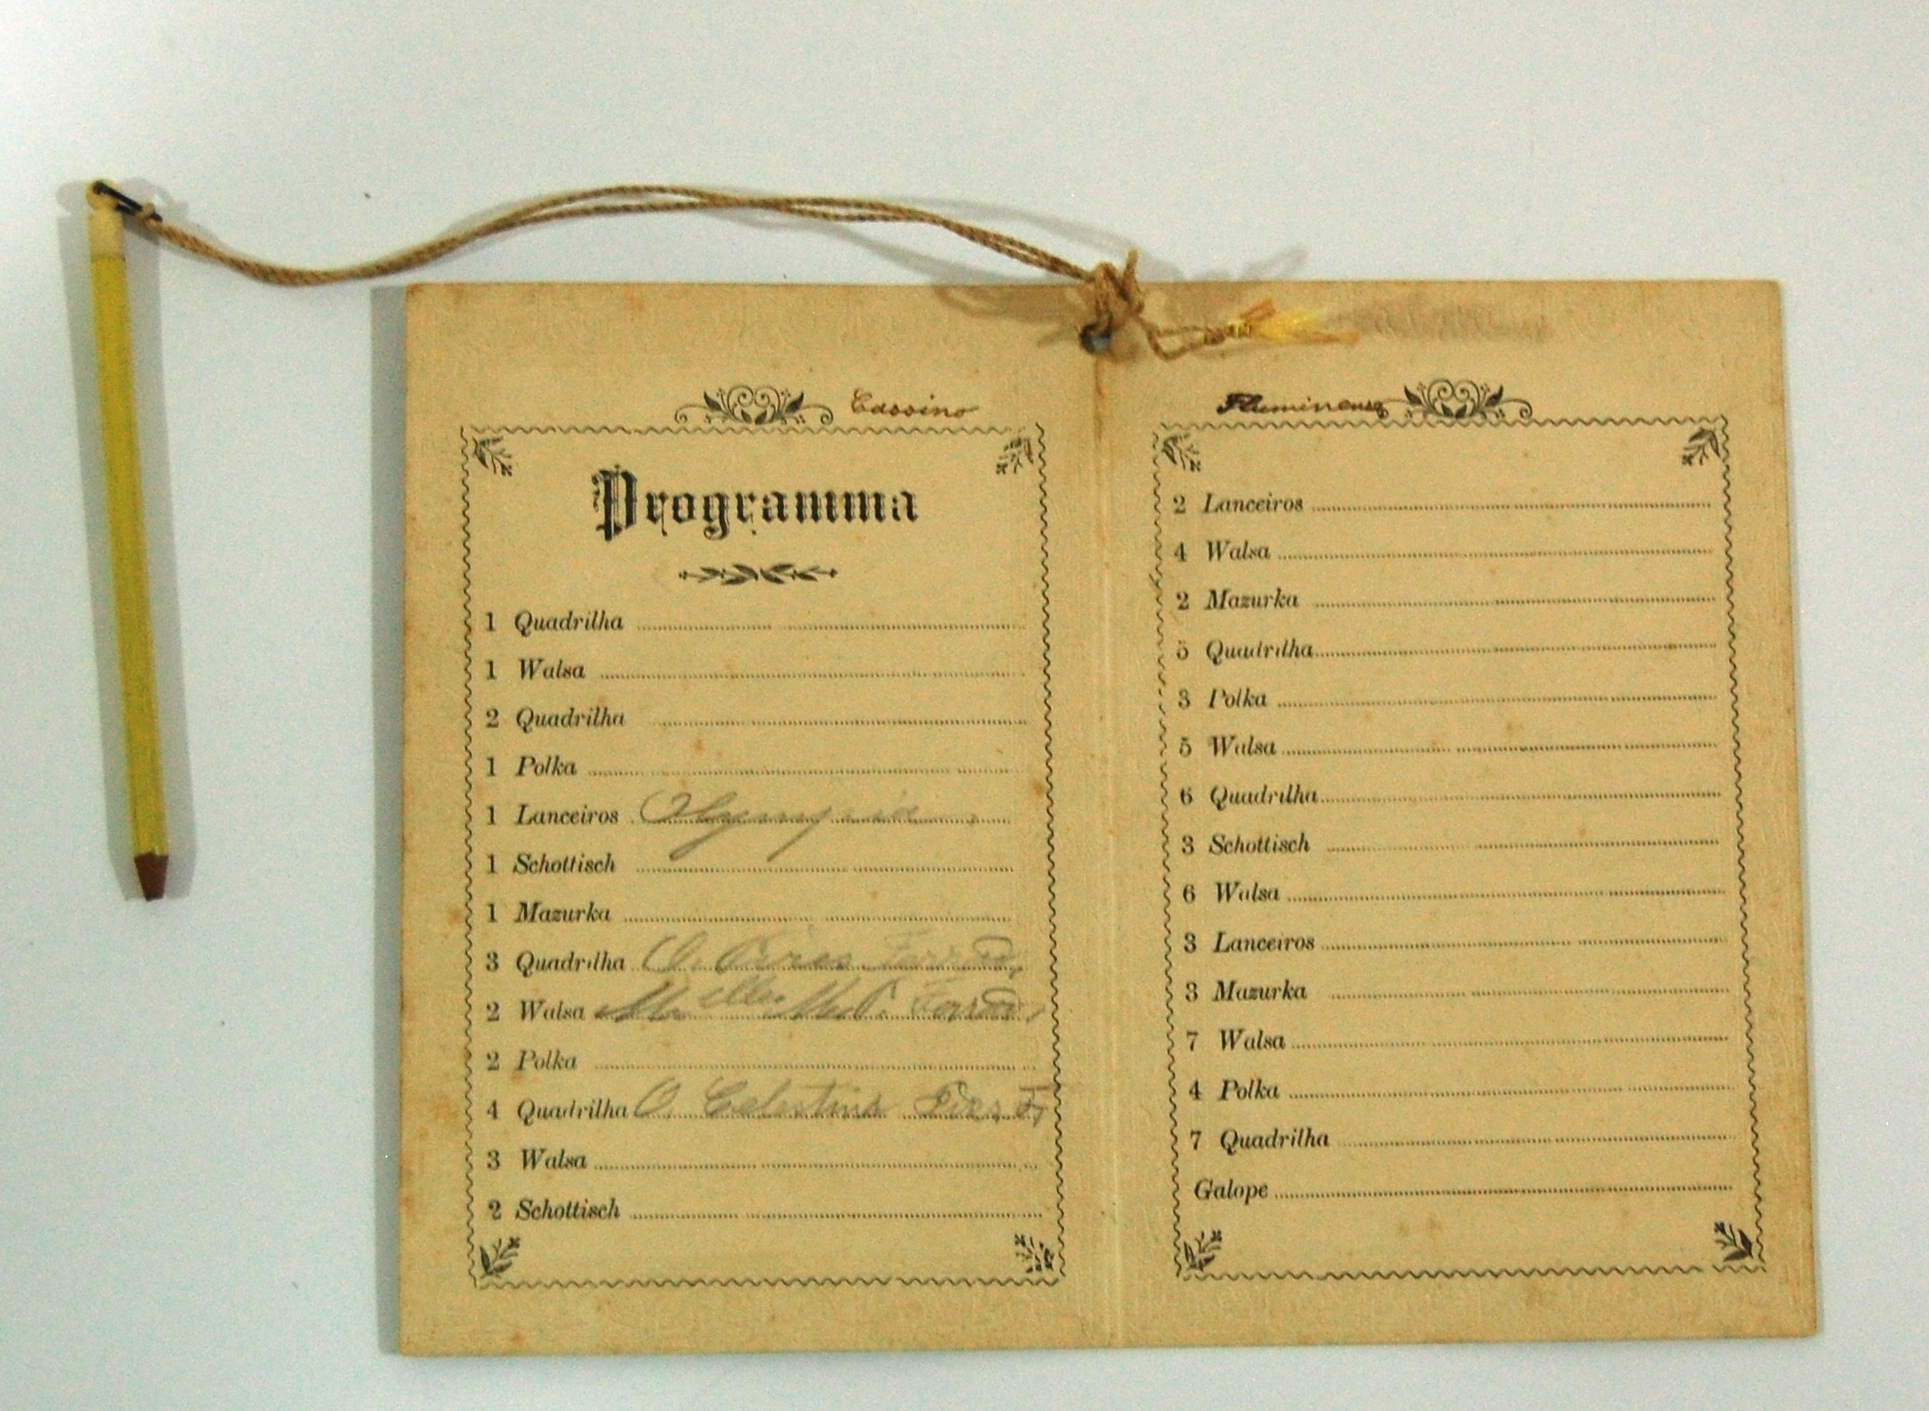 Cassino
Programma
1 Quadrilha
1 Walsa
2 Quadrilha
1 Polka
1 Lanceiros Olympia
1 Schottisch
1 Mazurka
3 Quadrilha Pires
2 Walsa
2 Polka
4 Quadrilha Celestina
3 Walsa
2 Schottisch
Fluminense
2 Lanceiros
4 Walsa
2 Mazurka
5 Quadrilha
3 Polka
5 Walsa
6 Quadrilha
3 Schottisch
6 Walsa
3 Lanceiros
3 Mazurka
7 Walsa
4 Polka
7 Quadrilha
Galope